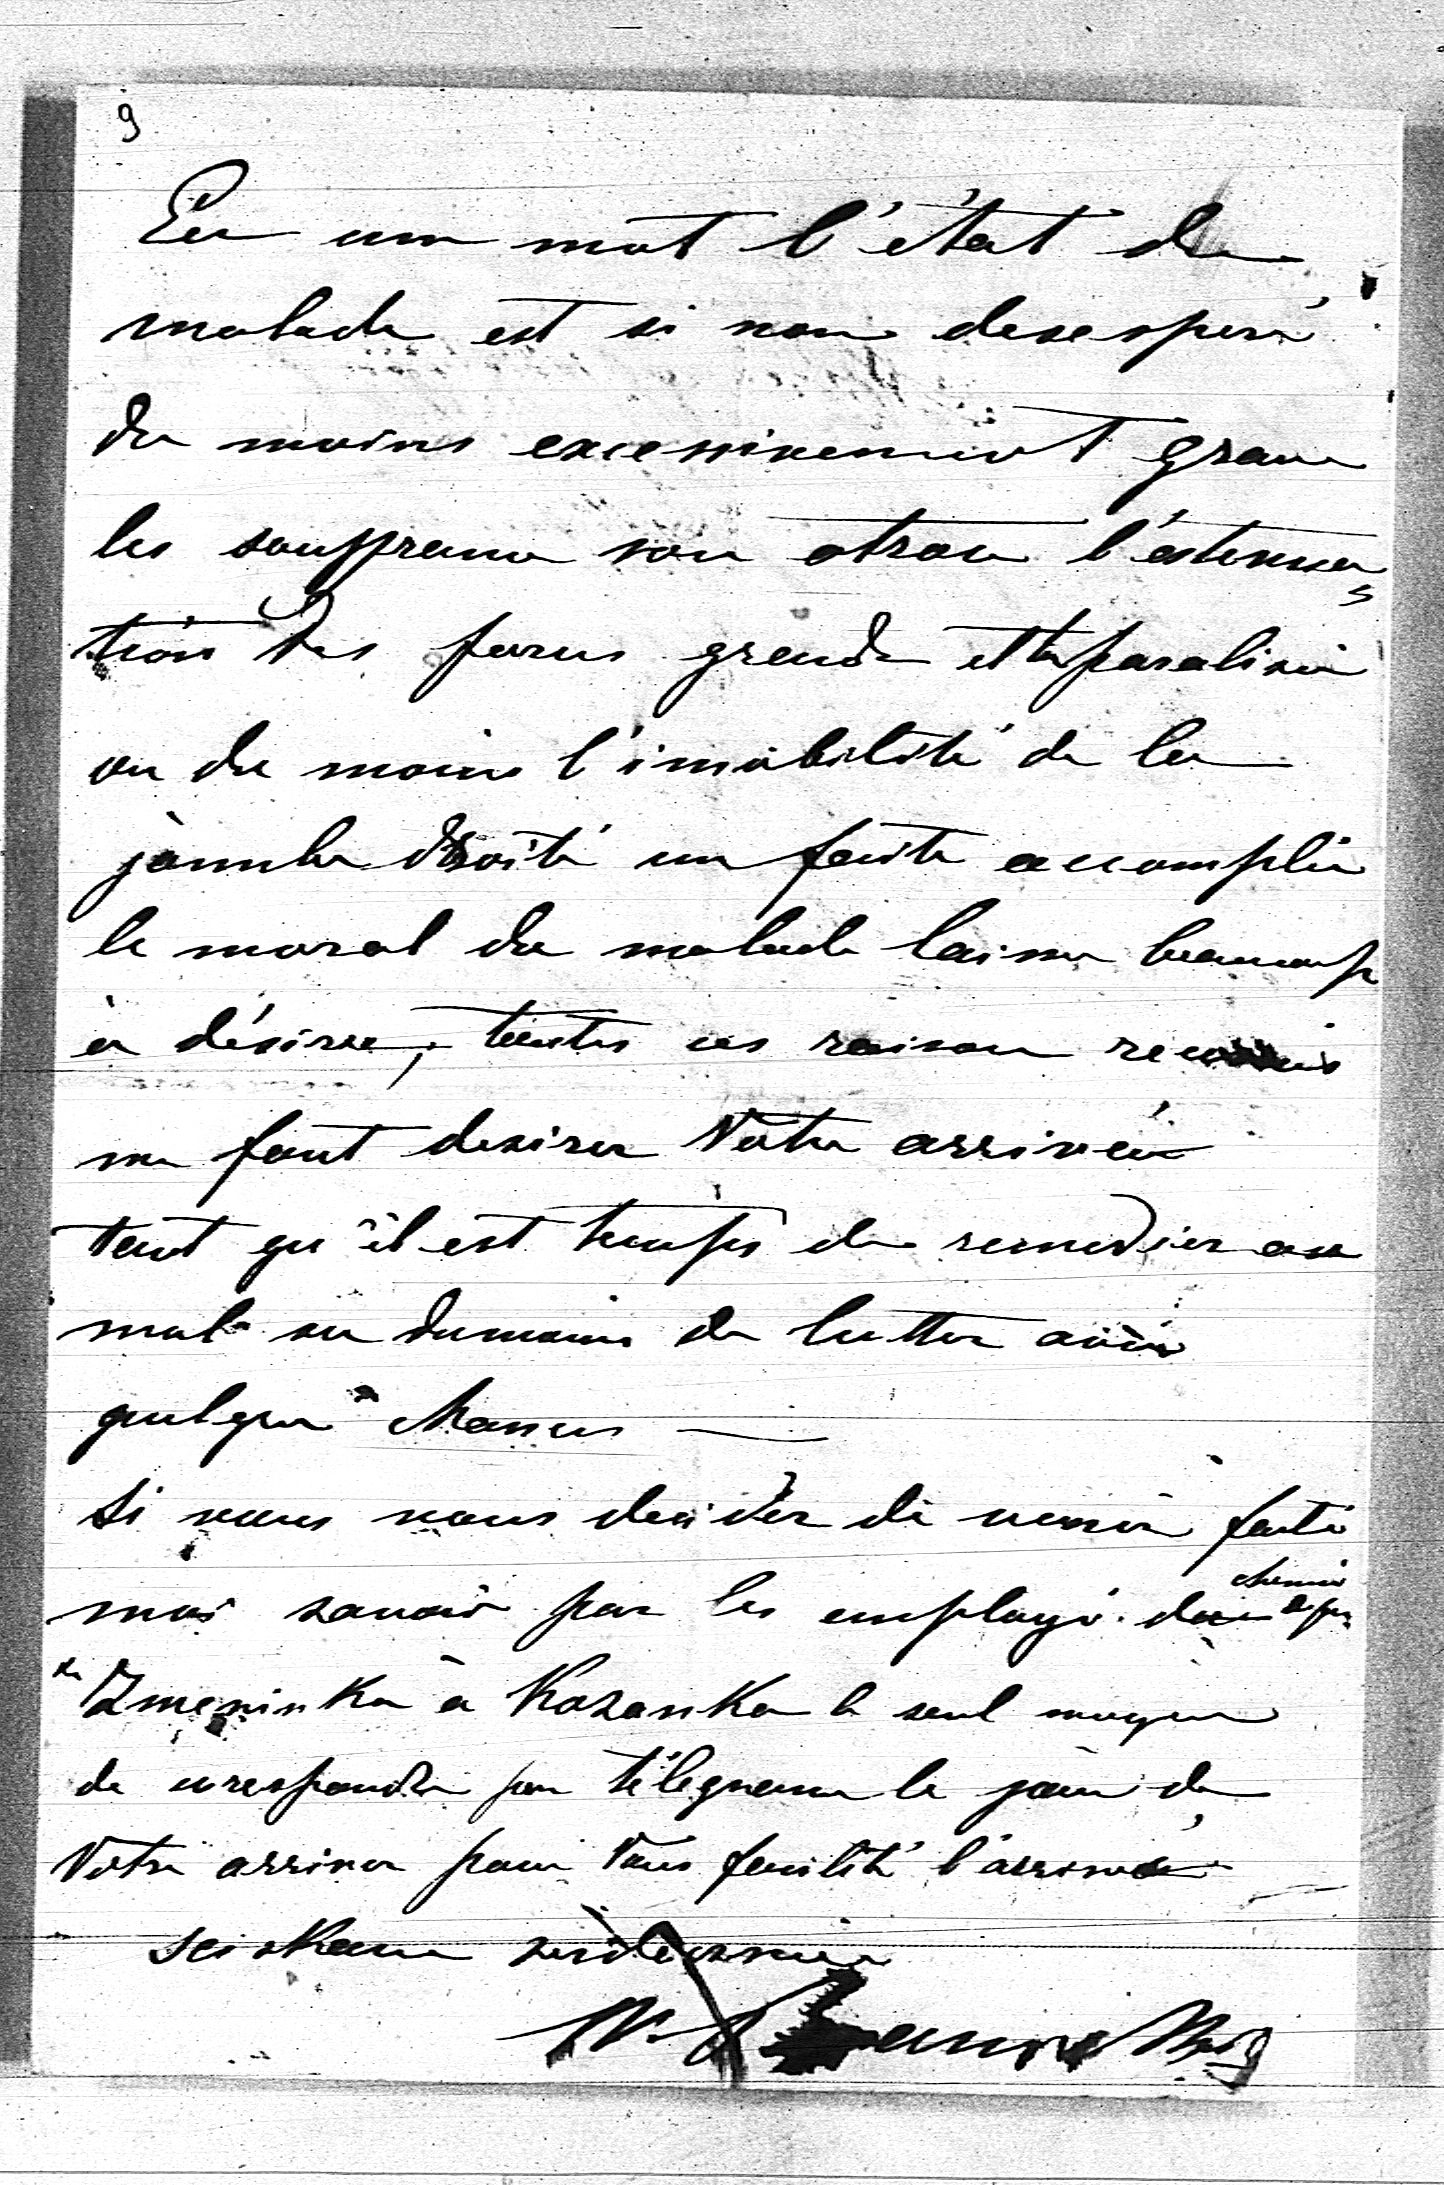 9
En un mot l'état du
malade est si non desesperé
du moins excessivement grave
les souffrance son atroce l'extenua
tion des forces grande et la paralisie
ou du moins l'imobilité de la
jambe droite un faite accomplie
le moral du malade laisse beaucoup
a désirer, toutes ces raison
me font desirer Votre arrivée
tent qu'il est temps de remedier au
mal ou dumoins de lutter avec
quelque chances —
Si vous vous decider de venir faite
moi savoir par les employé du chemin de fer
de Zmerinka à Kozanka le seul moyen
de corespondre par télegrame le jour de
Votre arriver pour Vous facilité l'arrivée